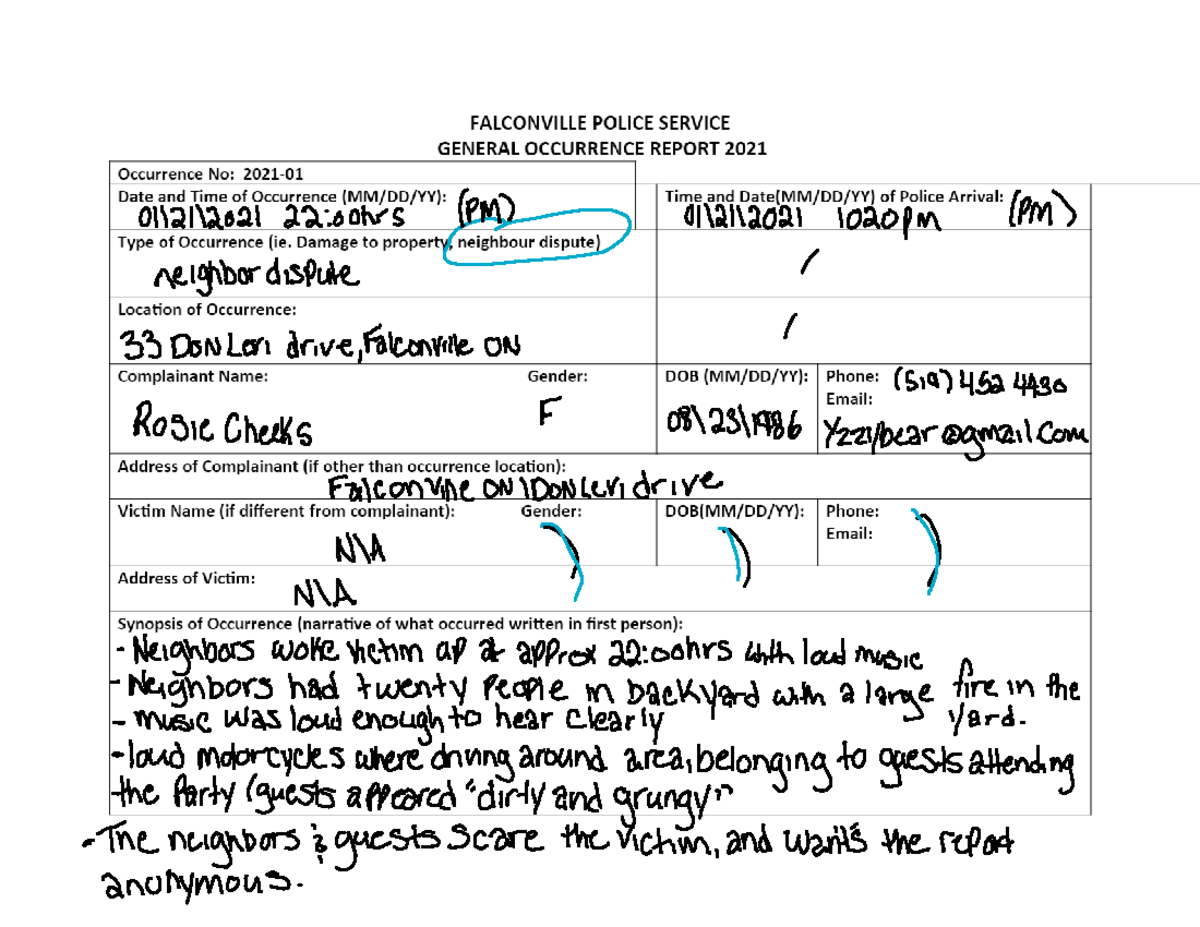 FALCONVILLE POLICE SERVICE
GENERAL OCCURRENCE REPORT 2021
Occurrence No: 2021-01
Date and Time of Occurrence (MM/DD/YY): (PM)
01\21\2021 22:00hrs
Time and Date(MM/DD/YY) of Police Arrival: (PM)
01\21\2021 1020pm
Type of Occurrence (ie. Damage to property, neighbour dispute)
neighbor dispute
Location of Occurrence:
33 Don Lori drive, Falconville ON
Complainant Name:
Rosie Cheeks
Gender:
F
DOB (MM/DD/YY):
08\23\1986
Phone: (519) 452 4430
Email:
Yzzybear@gmail.com
Address of Complainant (if other than occurrence location):
Falconville ON \ Don Levi drive
Victim Name (if different from complainant):
N\A
Gender:
DOB(MM/DD/YY):
Phone:
Email:
Address of Victim:
N\A
Synopsis of Occurrence (narrative of what occurred written in first person):
- Neighbors woke victim up at approx 22:00hrs with loud music
- Neighbors had twenty people in backyard with a large fire in the
yard.
- music was loud enough to hear clearly
- loud motorcycles where driving around area, belonging to guests attending
the party (guests appeared "dirty and grungy"
- The neighbors & guests scare the victim, and wants the report
anonymous.